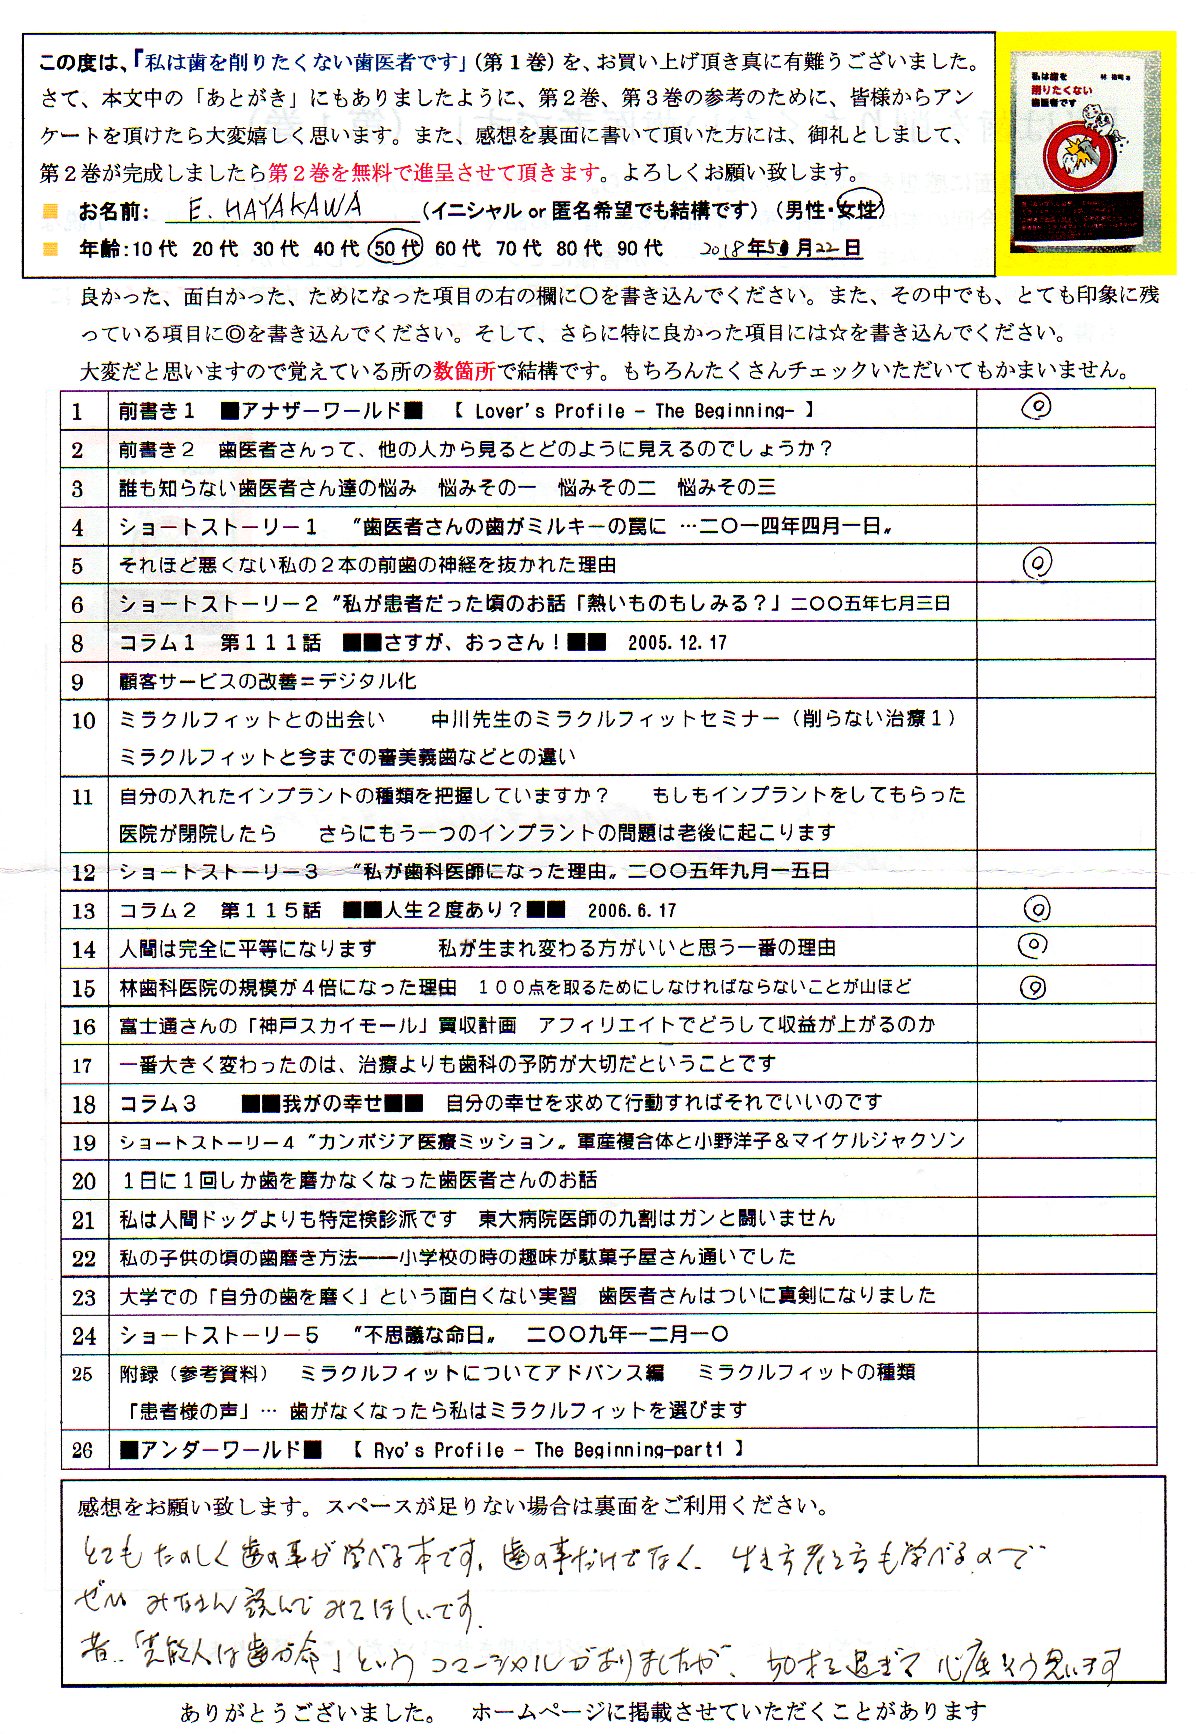 この度は、「私は歯を削りたくない歯医者です」（第１巻）を、お買い上げ頂き真に有難うございました。
さて、本文中の「あとがき」にもありましたように、第２巻、第３巻の参考のために、皆様からアン
ケートを頂けたら大変嬉しく思います。また、感想を裏面に書いて頂いた方には、御礼としまして、
第２巻が完成しましたら第２巻を無料で進呈させて頂きます。よろしくお願い致します。
■ お名前： E. HAYAKAWA （イニシャル or 匿名希望でも結構です）（男性・女性）
■ 年齢：10代 20代 30代 40代 50代 60代 70代 80代 90代 2018年5月22日
私は歯を
削りたくない
歯医者です
良かった、面白かった、ためになった項目の右の欄に〇を書き込んでください。また、その中でも、とても印象に残
っている項目に◎を書き込んでください。そして、さらに特に良かった項目には☆を書き込んでください。
大変だと思いますので覚えている所の数箇所で結構です。もちろんたくさんチェックいただいてもかまいません。
1 前書き１ ■アナザーワールド■ 【 Lover's Profile − The Beginning− 】 ◎
2 前書き２ 歯医者さんって、他の人から見るとどのように見えるのでしょうか？
3 誰も知らない歯医者さん達の悩み 悩みその一 悩みその二 悩みその三
4 ショートストーリー１ 〝歯医者さんの歯がミルキーの罠に …二〇一四年四月一日〟
5 それほど悪くない私の２本の前歯の神経を抜かれた理由 ◎
6 ショートストーリー２〝私が患者だった頃のお話「熱いものもしみる？」二〇〇五年七月三日
8 コラム１ 第１１１話 ■■さすが、おっさん！■■ 2005.12.17
9 顧客サービスの改善＝デジタル化
10 ミラクルフィットとの出会い 中川先生のミラクルフィットセミナー（削らない治療１）
ミラクルフィットと今までの審美義歯などとの違い
11 自分の入れたインプラントの種類を把握していますか？ もしもインプラントをしてもらった
医院が閉院したら さらにもう一つのインプラントの問題は老後に起こります
12 ショートストーリー３ 〝私が歯科医師になった理由〟二〇〇五年九月一五日
13 コラム２ 第１１５話 ■■人生２度あり？■■ 2006.6.17 ◎
14 人間は完全に平等になります 私が生まれ変わる方がいいと思う一番の理由 ◎
15 林歯科医院の規模が４倍になった理由 １００点を取るためにしなければならないことが山ほど ◎
16 富士通さんの「神戸スカイモール」買収計画 アフィリエイトでどうして収益が上がるのか
17 一番大きく変わったのは、治療よりも歯科の予防が大切だということです
18 コラム３ ■■我がの幸せ■■ 自分の幸せを求めて行動すればそれでいいのです
19 ショートストーリー４〝カンボジア医療ミッション〟軍産複合体と小野洋子＆マイケルジャクソン
20 １日に１回しか歯を磨かなくなった歯医者さんのお話
21 私は人間ドッグよりも特定検診派です 東大病院医師の九割はガンと闘いません
22 私の子供の頃の歯磨き方法――小学校の時の趣味が駄菓子屋さん通いでした
23 大学での「自分の歯を磨く」という面白くない実習 歯医者さんはついに真剣になりました
24 ショートストーリー５ 〝不思議な命日〟 二〇〇九年一二月一〇
25 附録（参考資料） ミラクルフィットについてアドバンス編 ミラクルフィットの種類
「患者様の声」… 歯がなくなったら私はミラクルフィットを選びます
26 ■アンダーワールド■ 【 Ryo's Profile − The Beginning−part1 】
感想をお願い致します。スペースが足りない場合は裏面をご利用ください。
とてもたのしく歯の事が学べる本です。歯の事だけでなく、生き方考え方も学べるので
ぜひみなさん読んでみてほしいです。
昔、「芸能人は歯が命」というコマーシャルがありましたが、 過ぎて心底そう思います
ありがとうございました。 ホームページに掲載させていただくことがあります